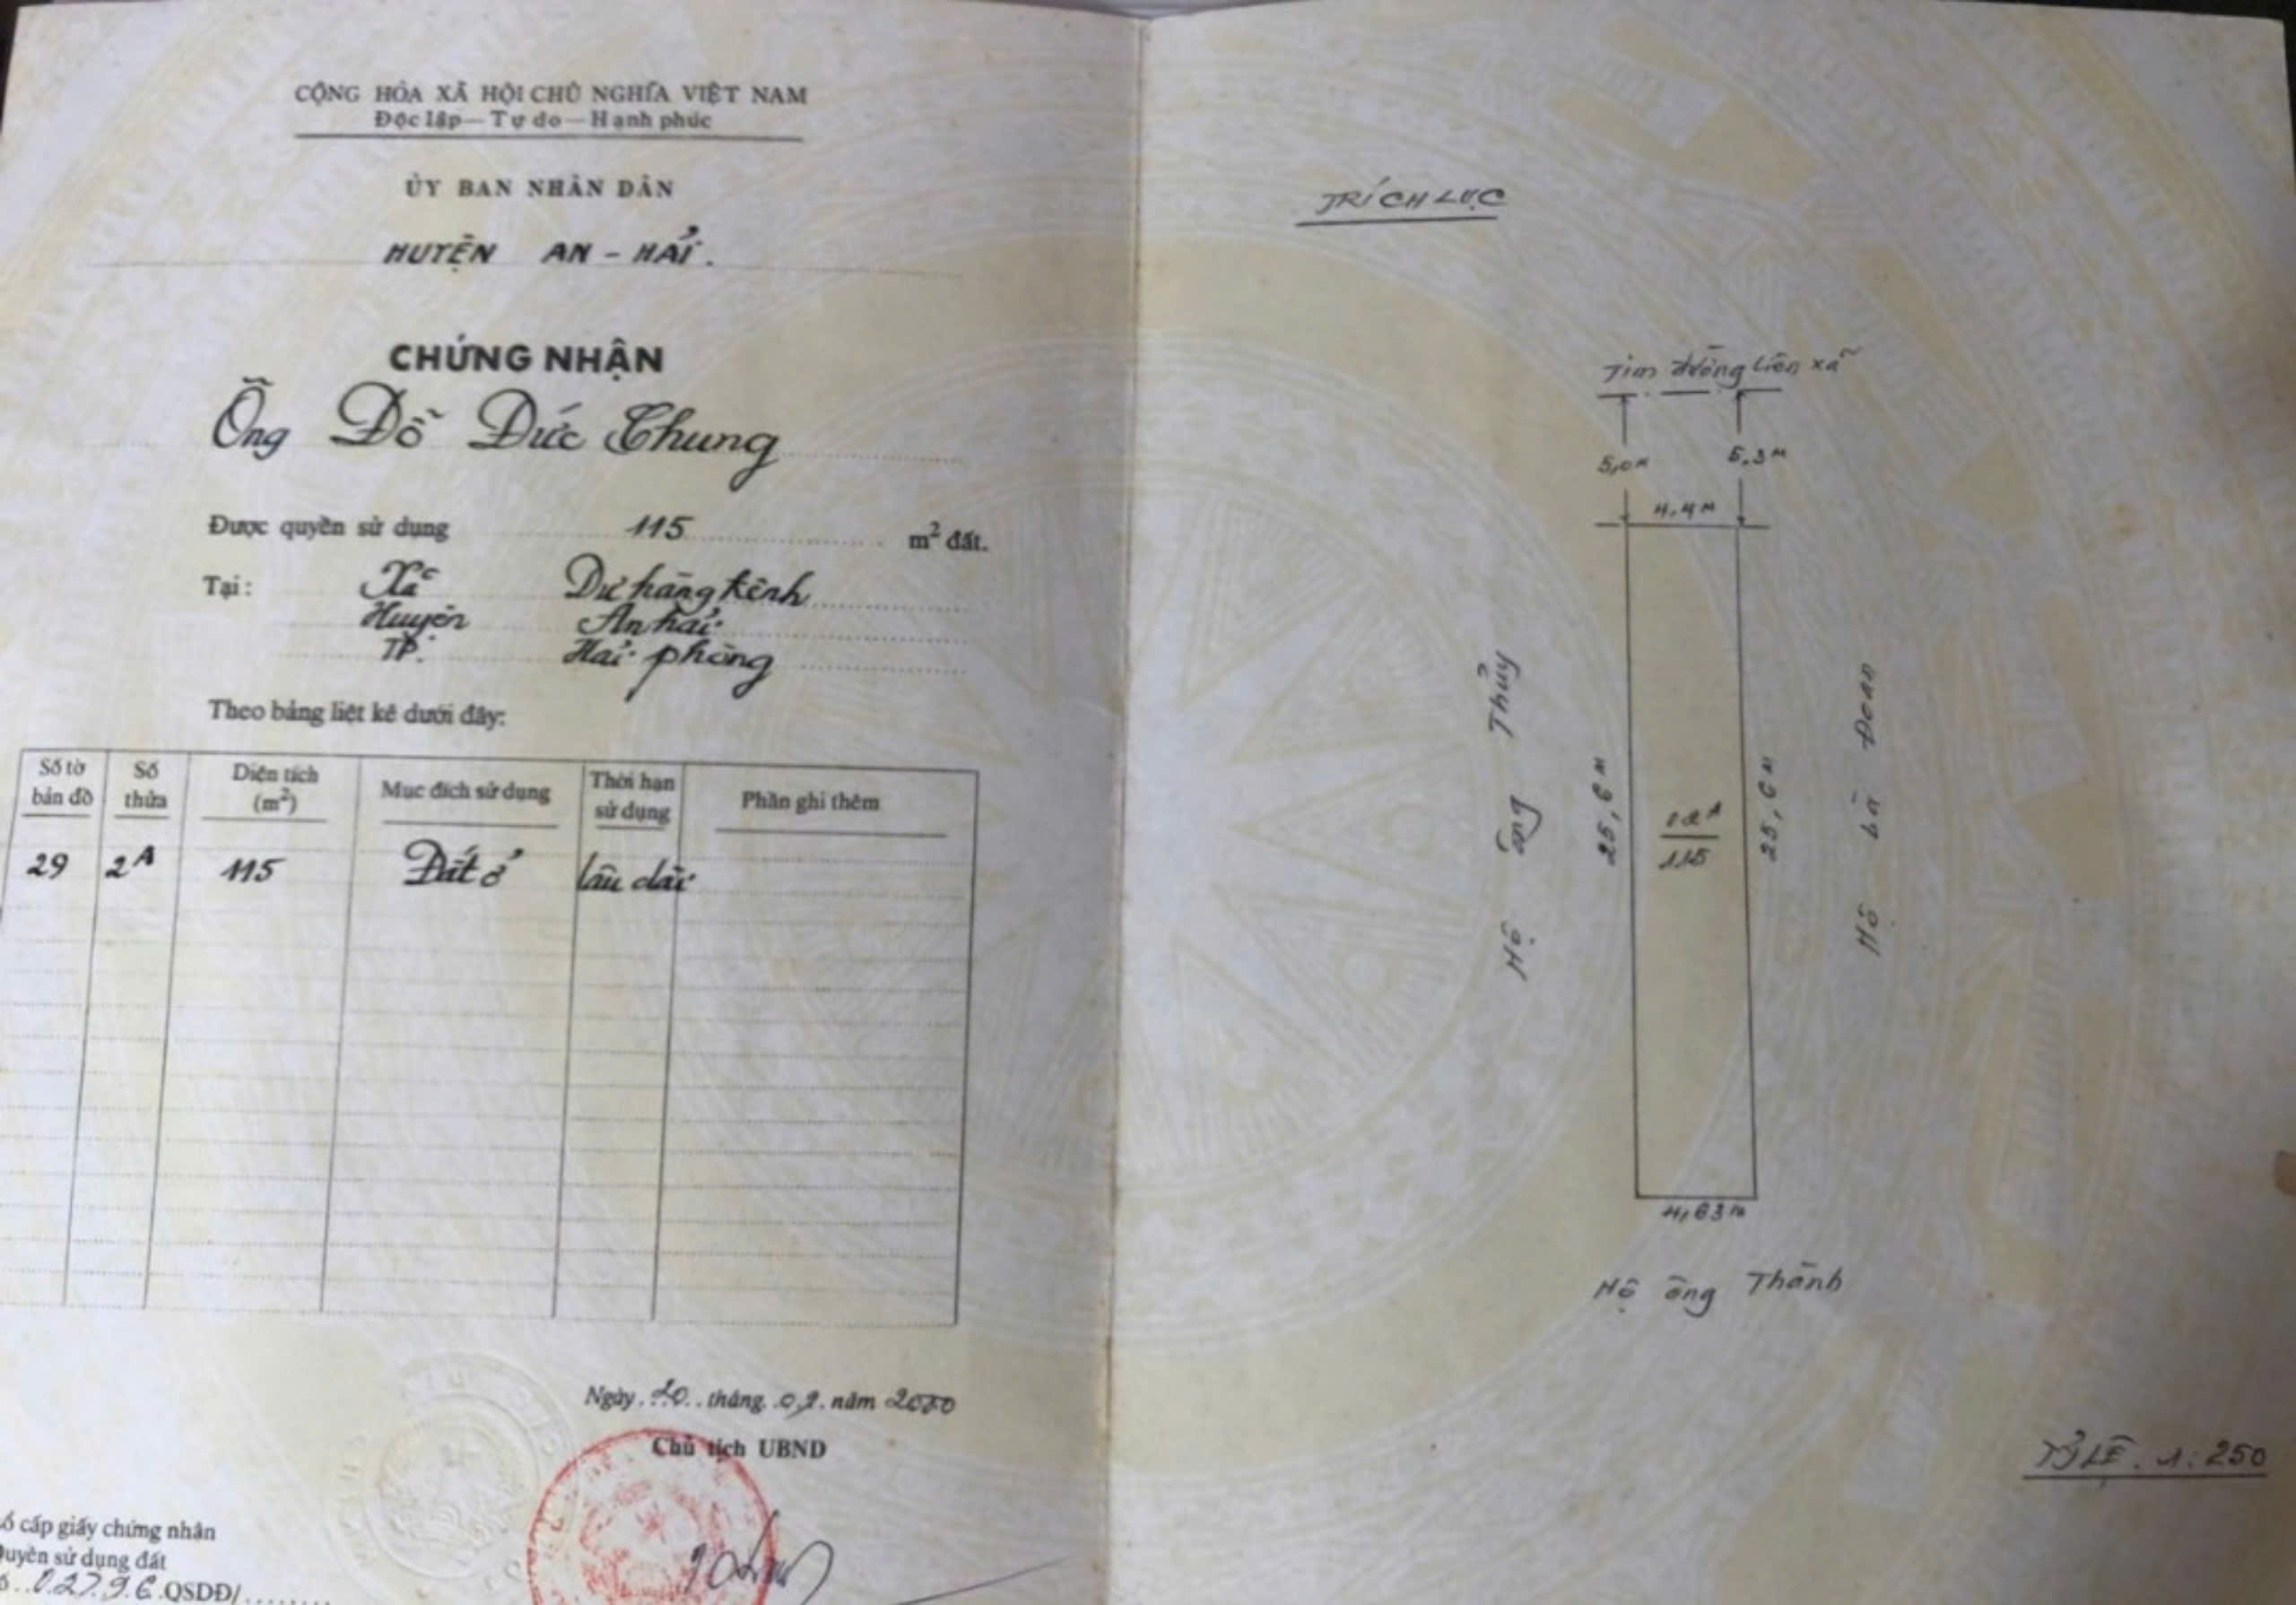 CỘNG HÒA XÃ HỘI CHỦ NGHĨA VIỆT NAM
Độc lập — Tự do — Hạnh phúc
ỦY BAN NHÂN DÂN
HUYỆN AN - HẢI.
CHỨNG NHẬN
Ông Đỗ Đức Chung
Được quyền sử dụng 115 m² đất.
Tại: Xã Dư hàng Kênh
Huyện An hải
TP. Hải phòng
Theo bảng liệt kê dưới đây:
Số tờ bản đồ Số thửa Diện tích (m²) Mục đích sử dụng Thời hạn sử dụng Phần ghi thêm
29 2A 115 Đất ở lâu dài
Ngày 20 tháng 09 năm 2000
Chủ tịch UBND
cấp giấy chứng nhận
Quyền sử dụng đất
QSDĐ/
TRÍCH LỤC
Tim đường liên xã
5,0M 5,3M
4,4M
Hộ ông Thủy
25,6M
115
25,6M
Hộ bà Đoan
4,63M
Hộ ông Thành
TỶ LỆ. 1:250